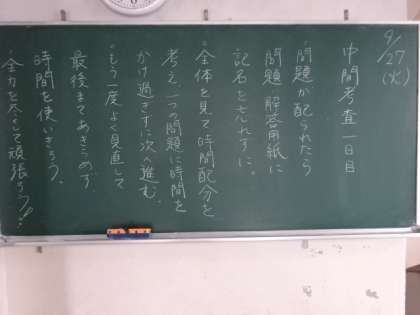 9/27
(火)
中間考査一日目
・問題が配られたら
問題、解答用紙に
記名を忘れずに。
・全体を見て時間配分を
考え、一つの問題に時間を
かけ過ぎずに次へ進む。
・もう一度よく見直して
最後まであきらめず
時間を使いきろう。
・全力を尽くして頑張ろう!!